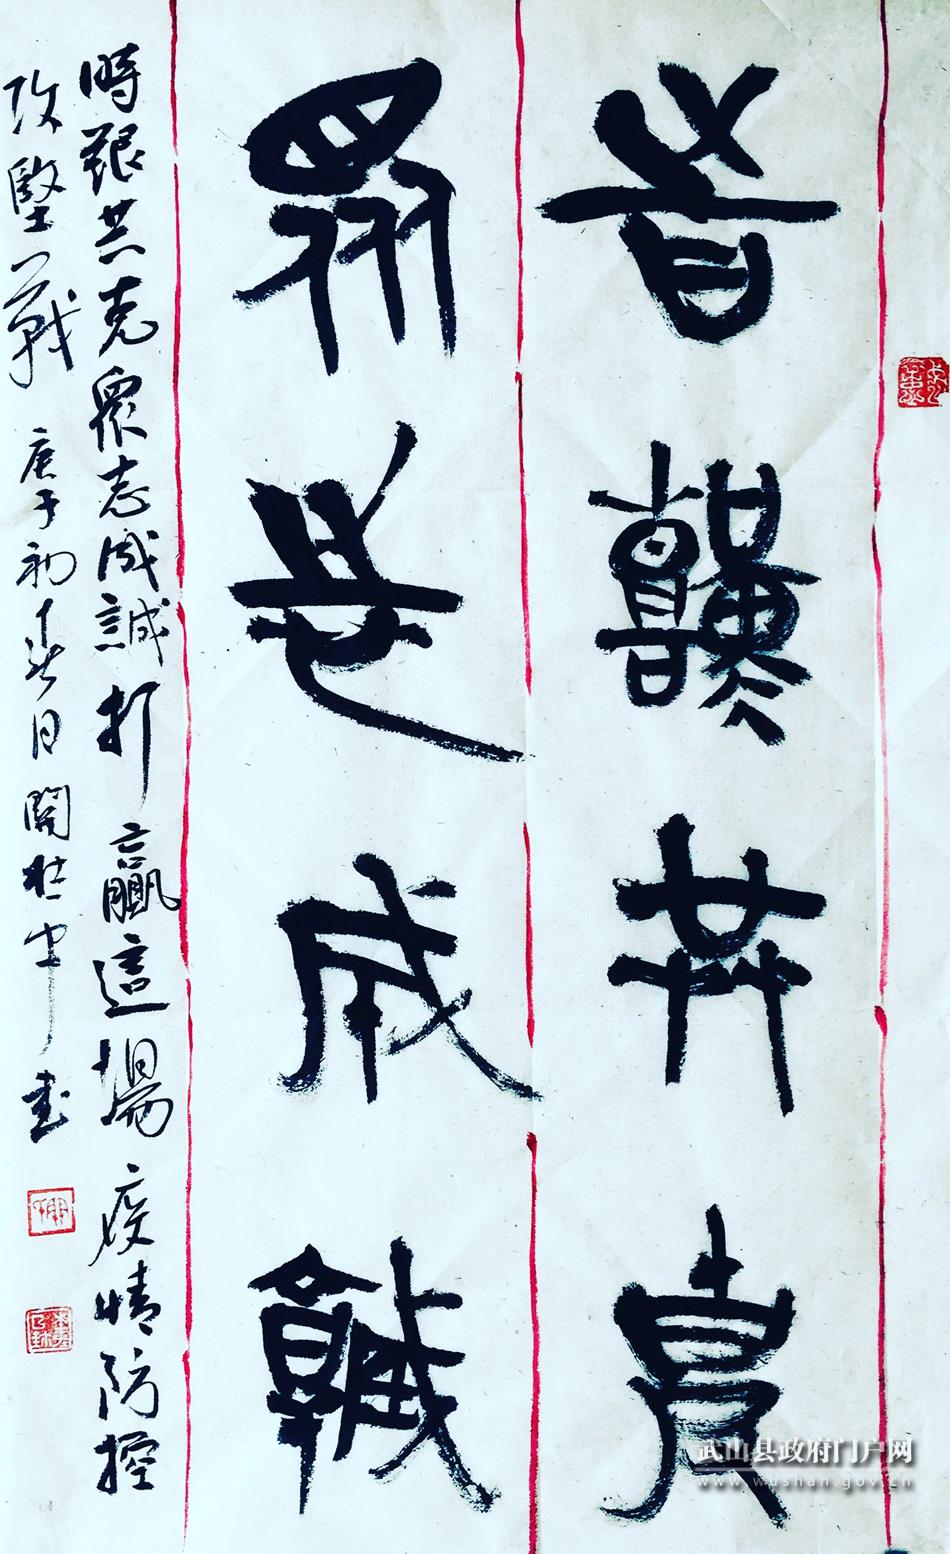 旹囏共克
眾志成城
時艱共克眾志成誠打贏這場疫情防控
攻堅戰 庚子初春日 書
武山县政府门户网
www.wushan.gov.cn